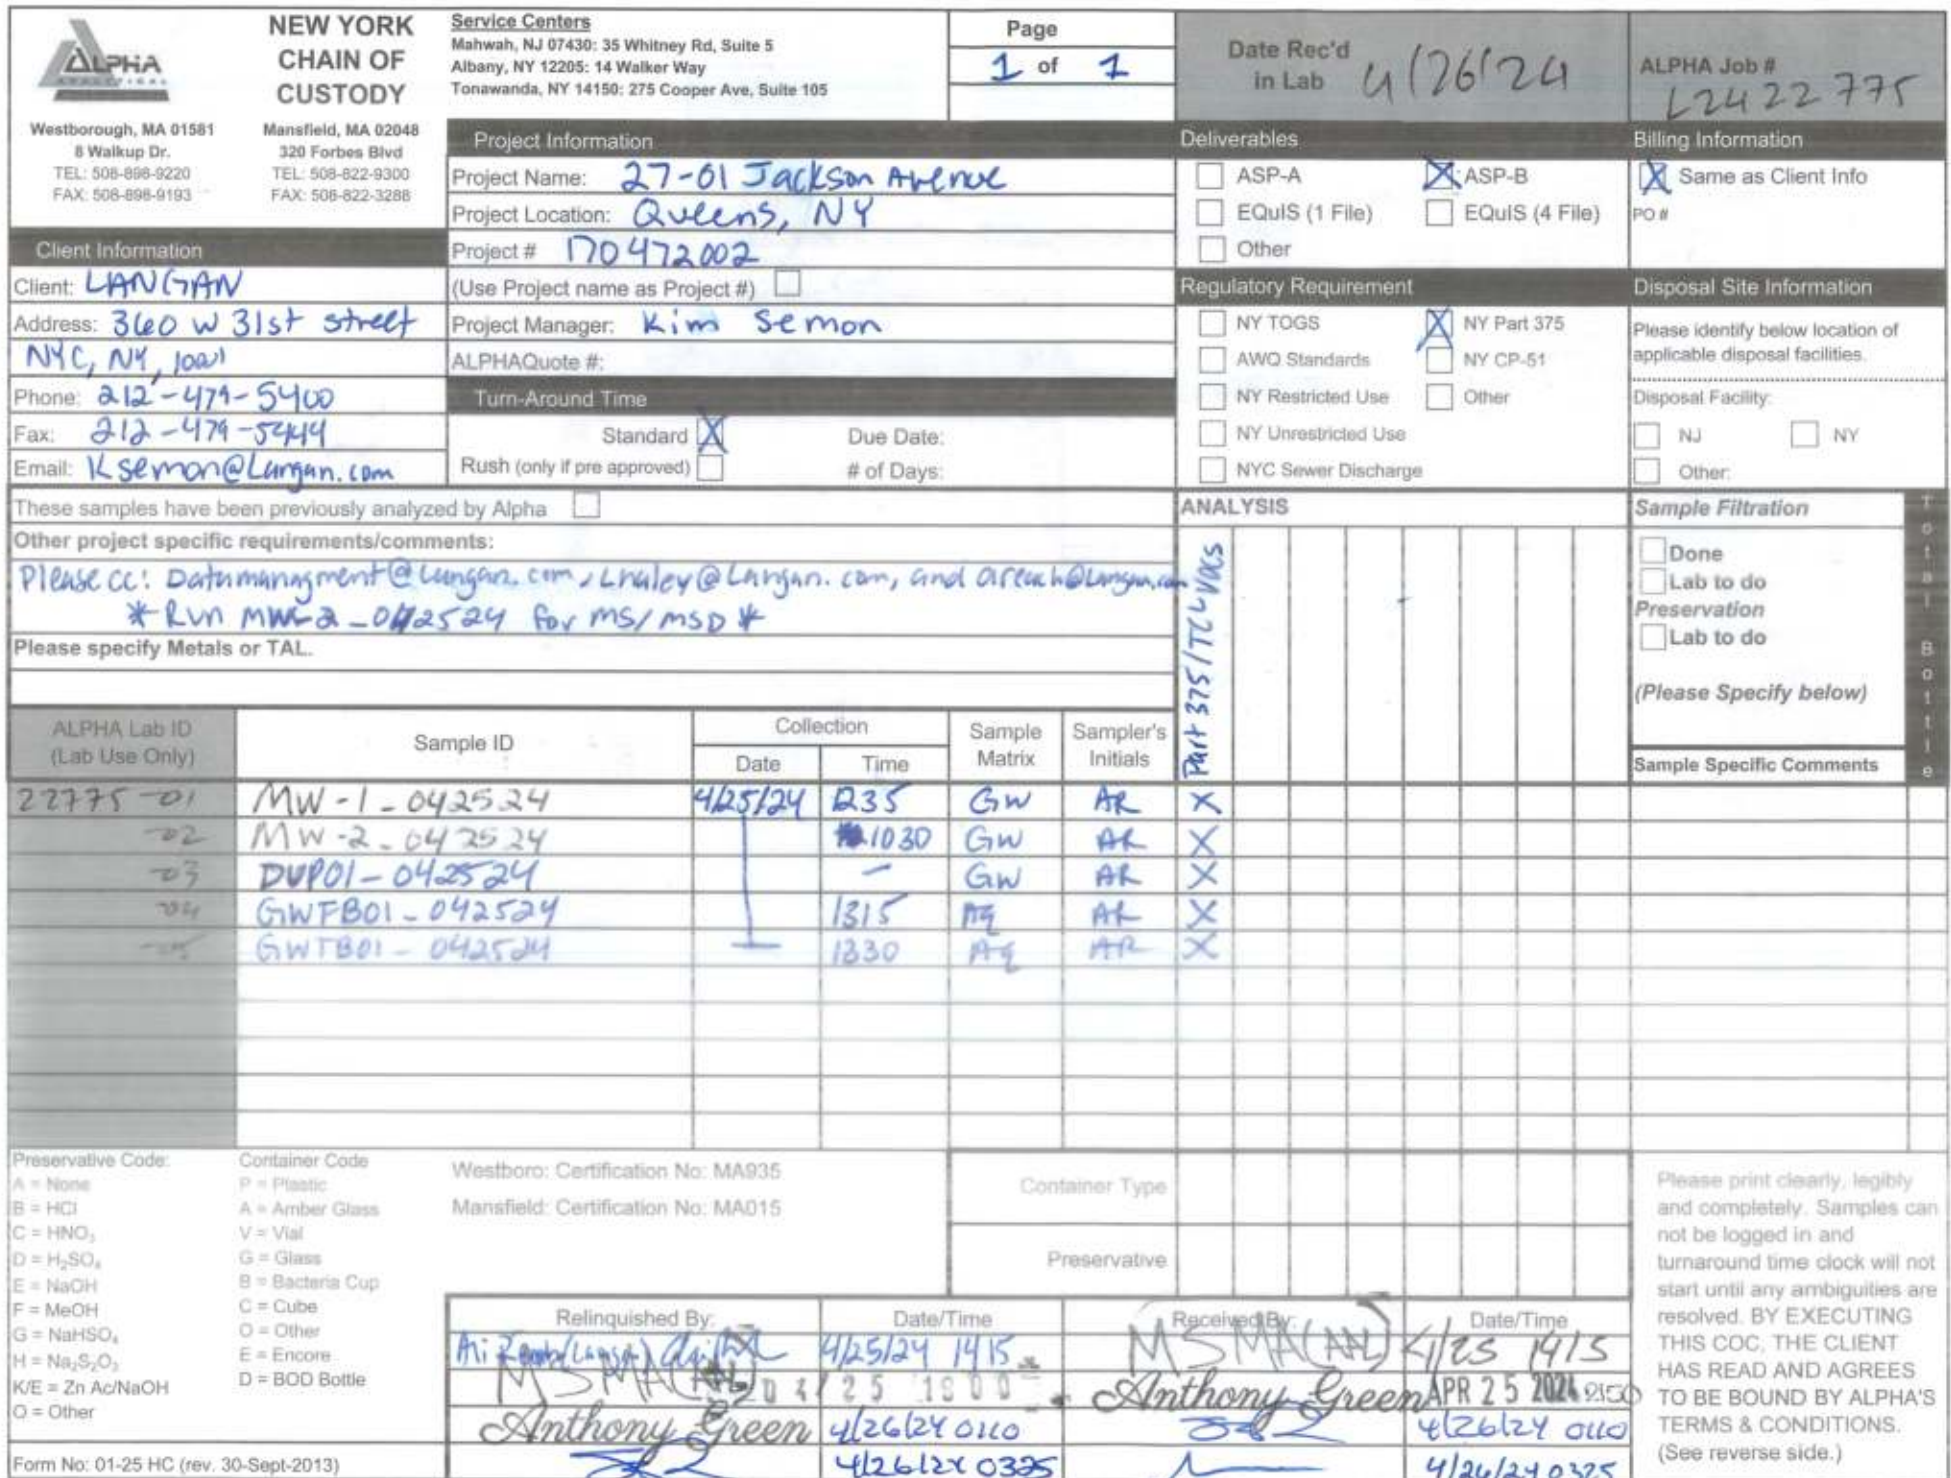 ALPHA
ANALYTICAL
NEW YORK
CHAIN OF
CUSTODY
Westborough, MA 01581
8 Walkup Dr.
TEL: 508-898-9220
FAX: 508-898-9193
Mansfield, MA 02048
320 Forbes Blvd
TEL: 508-822-9300
FAX: 508-822-3288
Service Centers
Mahwah, NJ 07430: 35 Whitney Rd, Suite 5
Albany, NY 12205: 14 Walker Way
Tonawanda, NY 14150: 275 Cooper Ave, Suite 105
Page
1 of 1
Date Rec'd
in Lab 4/26/24
ALPHA Job #
L2422775
Client Information
Client: LANGAN
Address: 360 W 31st street
NYC, NY, 10001
Phone: 212-479-5400
Fax: 212-479-5444
Email: Ksemon@Langan.com
Project Information
Project Name: 27-01 Jackson Avenue
Project Location: Queens, NY
Project # 170472002
(Use Project name as Project #)
Project Manager: Kim Semon
ALPHAQuote #:
Turn-Around Time
Standard X Due Date:
Rush (only if pre approved) # of Days:
Deliverables
ASP-A X ASP-B
EQuIS (1 File) EQuIS (4 File)
Other
Regulatory Requirement
NY TOGS X NY Part 375
AWQ Standards NY CP-51
NY Restricted Use Other
NY Unrestricted Use
NYC Sewer Discharge
Billing Information
X Same as Client Info
PO #
Disposal Site Information
Please identify below location of
applicable disposal facilities.
Disposal Facility:
NJ NY
Other:
These samples have been previously analyzed by Alpha
Other project specific requirements/comments:
Please cc: Datamanagment@Langan.com, Lhaley@Langan.com, and areach@Langan.com
* Run MW-2_042524 for MS/MSD *
Please specify Metals or TAL.
ANALYSIS
Part 375/TCL VOCs
Sample Filtration
Done
Lab to do
Preservation
Lab to do
(Please Specify below)
Total Bottle
ALPHA Lab ID
(Lab Use Only)
Sample ID
Collection
Date Time
Sample
Matrix
Sampler's
Initials
Sample Specific Comments
22775-01 MW-1_042524 4/25/24 1235 GW AR X
-02 MW-2_042524 1030 GW AR X
-03 DUP01_042524 - GW AR X
-04 GWFB01_042524 1315 Aq AR X
-05 GWTB01_042524 1330 Aq AR X
Preservative Code:
A = None
B = HCl
C = HNO₃
D = H₂SO₄
E = NaOH
F = MeOH
G = NaHSO₄
H = Na₂S₂O₃
K/E = Zn Ac/NaOH
O = Other
Container Code
P = Plastic
A = Amber Glass
V = Vial
G = Glass
B = Bacteria Cup
C = Cube
O = Other
E = Encore
D = BOD Bottle
Westboro: Certification No: MA935
Mansfield: Certification No: MA015
Container Type
Preservative
Relinquished By: Date/Time Received By: Date/Time
4/25/24 1415 MSMA(AAL) 4/25 1415
MSMA(AAL) 04/25 1800 Anthony Green APR 25 2024 2150
Anthony Green 4/26/24 0110 4/26/24 0110
4/26/24 0325 4/26/24 0325
Please print clearly, legibly
and completely. Samples can
not be logged in and
turnaround time clock will not
start until any ambiguities are
resolved. BY EXECUTING
THIS COC, THE CLIENT
HAS READ AND AGREES
TO BE BOUND BY ALPHA'S
TERMS & CONDITIONS.
(See reverse side.)
Form No: 01-25 HC (rev. 30-Sept-2013)